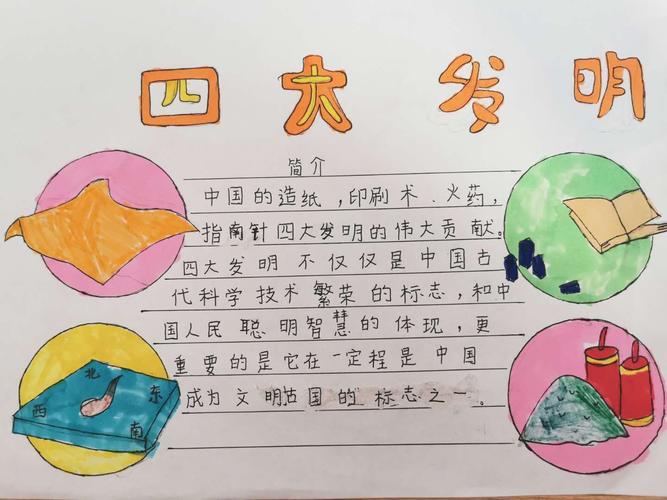 四大发明
简介
中国的造纸，印刷术、火药，
指南针四大发明的伟大贡献。
四大发明不仅仅是中国古
代科学技术繁荣的标志，和中
国人民聪明智慧的体现，更
重要的是它在一定程是中国
成为文明古国的标志之一。
北
西 东
南